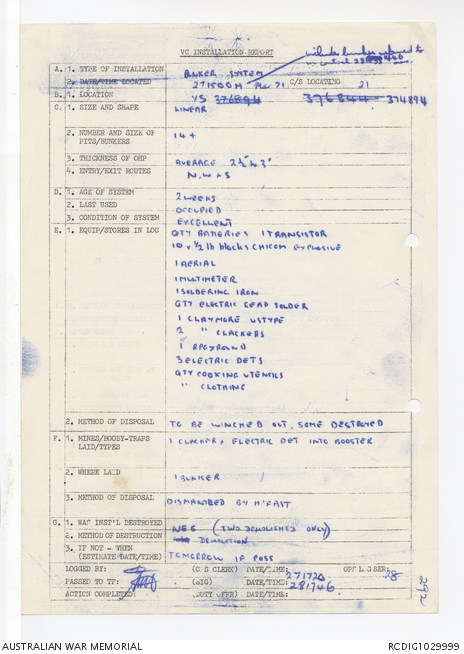 VC INSTALLATION REPORT
includes bunkers referred to
in contact
A. 1. TYPE OF INSTALLATION BUNKER SYSTEM
2. DATE/TIME LOCATED 271500H Mar 71 C/S LOCATING 21
B. 1. LOCATION YS 376894 376844 374894
C. 1. SIZE AND SHAPE LINEAR
2. NUMBER AND SIZE OF PITS/BUNKERS 14+
3. THICKNESS OF OHP AVERAGE 2½' to 3'
4. ENTRY/EXIT ROUTES N, W & S
D. 1. AGE OF SYSTEM 2 WEEKS
2. LAST USED OCCUPIED
3. CONDITION OF SYSTEM EXCELLENT
E. 1. EQUIP/STORES IN LOC QTY BATTERIES 1 TRANSISTOR
10 x ½ lb blocks CHICOM EXPLOSIVE
1 AERIAL
1 MULTIMETER
1 SOLDERING IRON
QTY ELECTRIC LEAD SOLDER
1 CLAYMORE US TYPE
2 " CLACKERS
1 RPG7 ROUND
3 ELECTRIC DETS
QTY COOKING UTENCILS
" CLOTHING
2. METHOD OF DISPOSAL TO BE WINCHED OUT, SOME DESTROYED
F. 1. MINES/BOOBY-TRAPS LAID/TYPES 1 CLACKER & ELECTRIC DET INTO BOOSTER
2. WHERE LAID 1 BUNKER
3. METHOD OF DISPOSAL DISMANTLED BY H'FAST
G. 1. WAS INST'L DESTROYED (TWO DEMOLISHED ONLY)
2. METHOD OF DESTRUCTION DEMOLITION
3. IF NOT - WHEN (ESTIMATE DATE/TIME) TOMORROW IF POSS
LOGGED BY: (C S CLERK) DATE/TIME: 271720 OPS LOG SER: 78
PASSED TO TF: (SIG) DATE/TIME: 281746
ACTION COMPLETED: (DUTY OFFR) DATE/TIME:
292
AUSTRALIAN WAR MEMORIAL RCDIG1029999